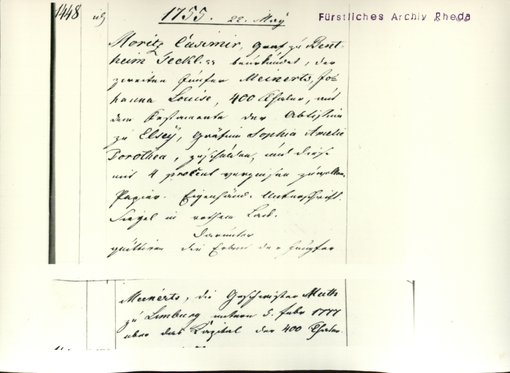 1448
1755. 22. Maÿ
Fürstliches Archiv Rheda
Moritz Casimir, Graf zu Bent-
heim Teckl. beurkundet, der
zweiten Jungfer Meinerts, Jo-
hanna Louise, 400 Thaler, aus
dem Testamente der Abtissin
zu Elseÿ, Gräfin Sophia Amelia
Dorothea, zu schulden, und diese
mit 4 procent verzinsen zu wollen.
Papier. Eigenhänd. Unterschrift.
Siegel in rothem Lack.
Darunter
quittiren die Erben der Jungfer
Meinerts, die Geschwister Muth
zu Limburg unterm 5. Febr 1777
über das Capital der 400 Thaler